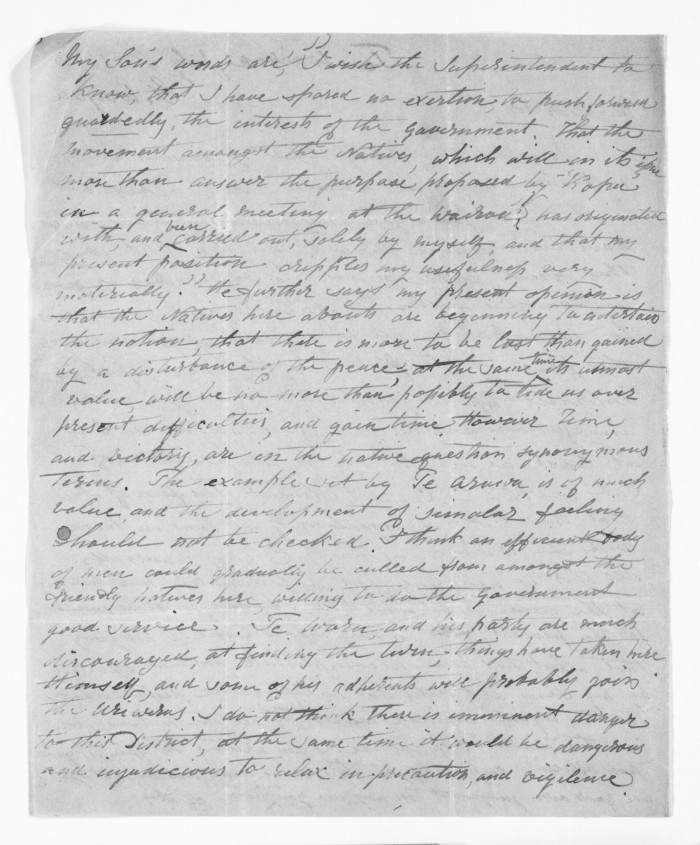 My Son's words are, "I wish the Superintendent to
know, that I have spared no exertion, to push forward
guardedly, the interests of the Government. That the
movement amongst the Natives, which will in its
more than answer the purpose proposed by "Kopu
in a general meeting at the Wairoa" has originated
with, and been carried out, solely by myself, and that my
present position cripples my usefulness very
materially." He further says "my present opinion is
that the Natives here abouts are beginning to entertain
the notion, that there is more to be lost than gained
by a disturbance of the peace, at the same time its utmost
value, will be no more than possibly to tide us over
present difficulties, and gain time. However time,
and victory, are in the native question synonymous
terms. The example set by Te Arawa, is of much
value and the development of similar feeling
should not be checked. I think an efficient body
of men could gradually be culled from amongst the
friendly natives here, willing to do the Government
good service. Te Waru, and his party are much
discouraged, at finding the turn, things have taken here
himself, and some of his adherents will probably join
the Uriweras. I do not think there is imminent danger
to this District, at the same time it would be dangerous
and injudicious to relax in precaution, and vigilence.